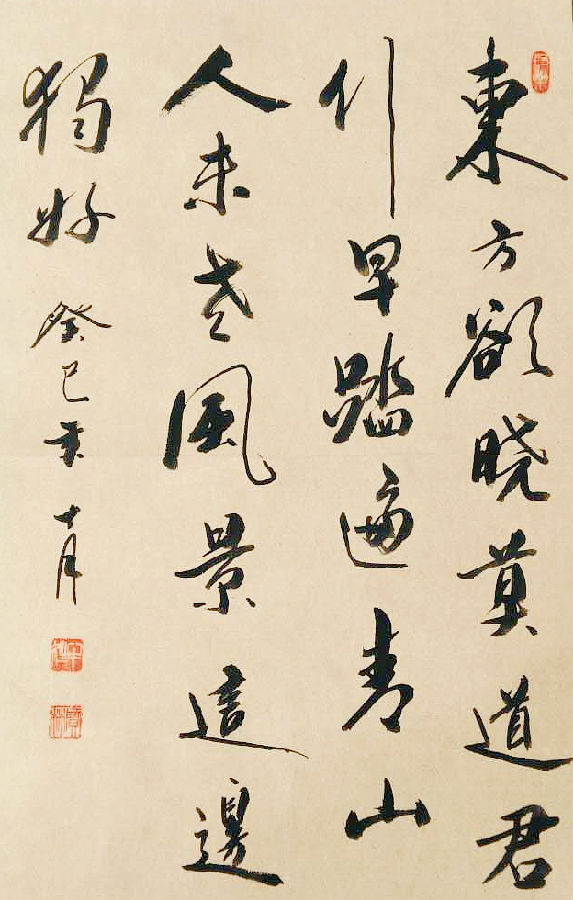 東方欲晓莫道君
行早踏遍青山
人未老風景這邊
獨好 癸巳年十月